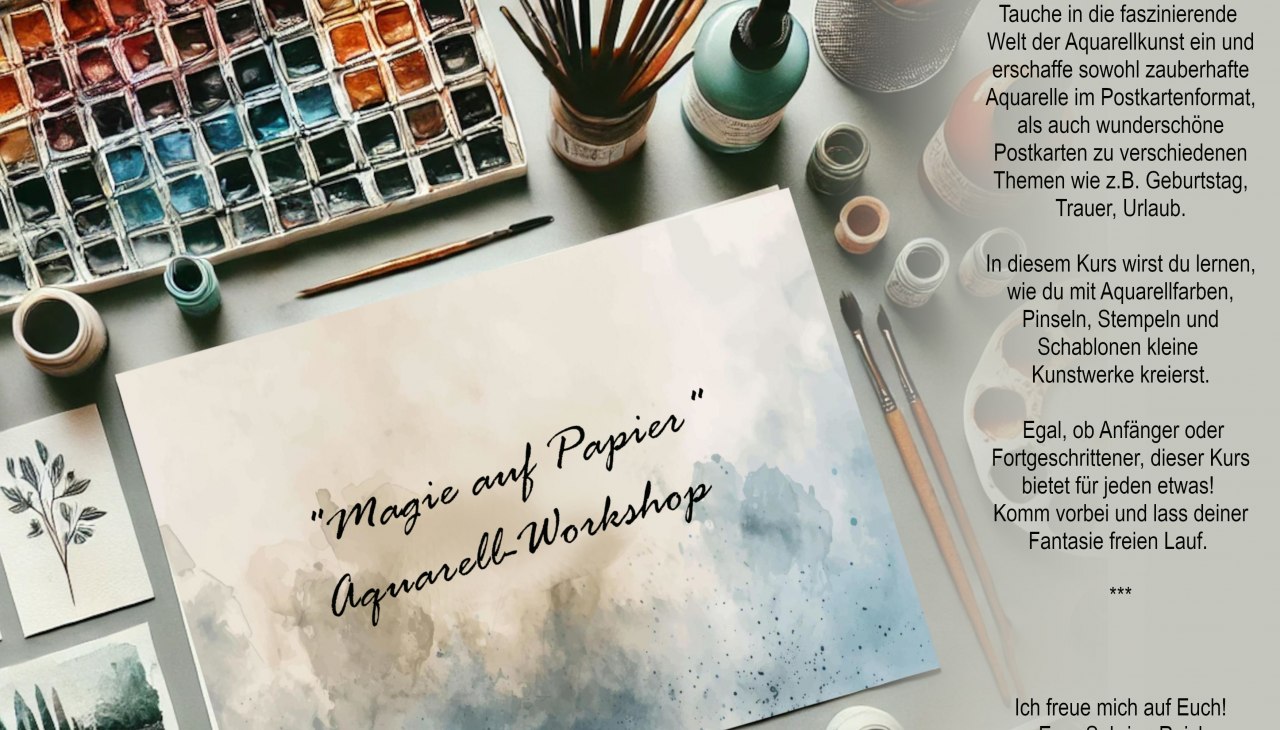 "Magie auf Papier"
Aquarell-Workshop
Tauche in die faszinierende
Welt der Aquarellkunst ein und
erschaffe sowohl zauberhafte
Aquarelle im Postkartenformat,
als auch wunderschöne
Postkarten zu verschiedenen
Themen wie z.B. Geburtstag,
Trauer, Urlaub.
In diesem Kurs wirst du lernen,
wie du mit Aquarellfarben,
Pinseln, Stempeln und
Schablonen kleine
Kunstwerke kreierst.
Egal, ob Anfänger oder
Fortgeschrittener, dieser Kurs
bietet für jeden etwas!
Komm vorbei und lass deiner
Fantasie freien Lauf.
***
Ich freue mich auf Euch!